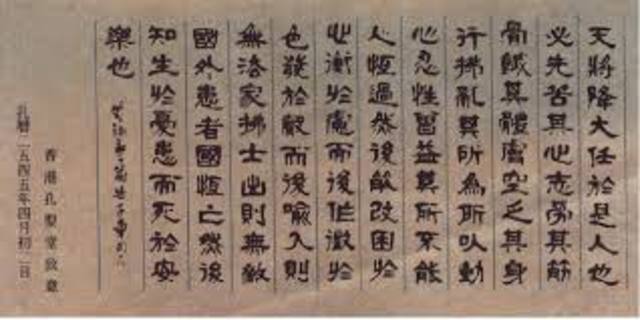 天將降大任於是人也
必先苦其心志勞其筋
骨餓其體膚空乏其身
行拂亂其所為所以動
心忍性曾益其所不能
人恆過然後能改困於
心衡於慮而後作徵於
色發於聲而後喻入則
無法家拂士出則無敵
國外患者國恆亡然後
知生於憂患而死於安
樂也
香港孔聖堂致意
孔曆二五四五年四月初二日